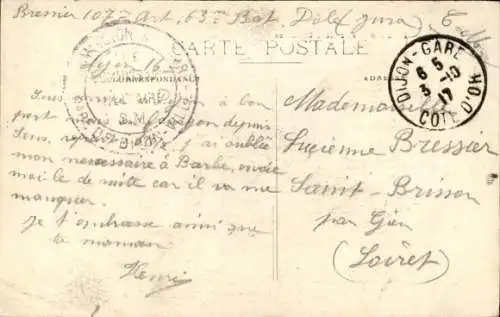 Bressier 107e Art, 63e Bat, Dôle (Jura)
CARTE POSTALE
CORRESPONDANCE
DIJON-GARE
6 5
3 -10
17
COTE D'OR
Dijon 16
Suis arrivé à bon
port depuis
Sens, j'ai oublié
mon nécessaire à Barbe, envoie
moi le de suite car il va me
manquer.
Je t'embrasse ainsi que
ta maman
Henri
Mademoiselle
Lucienne Bressier
Saint-Brisson
par Gien
(Loiret)